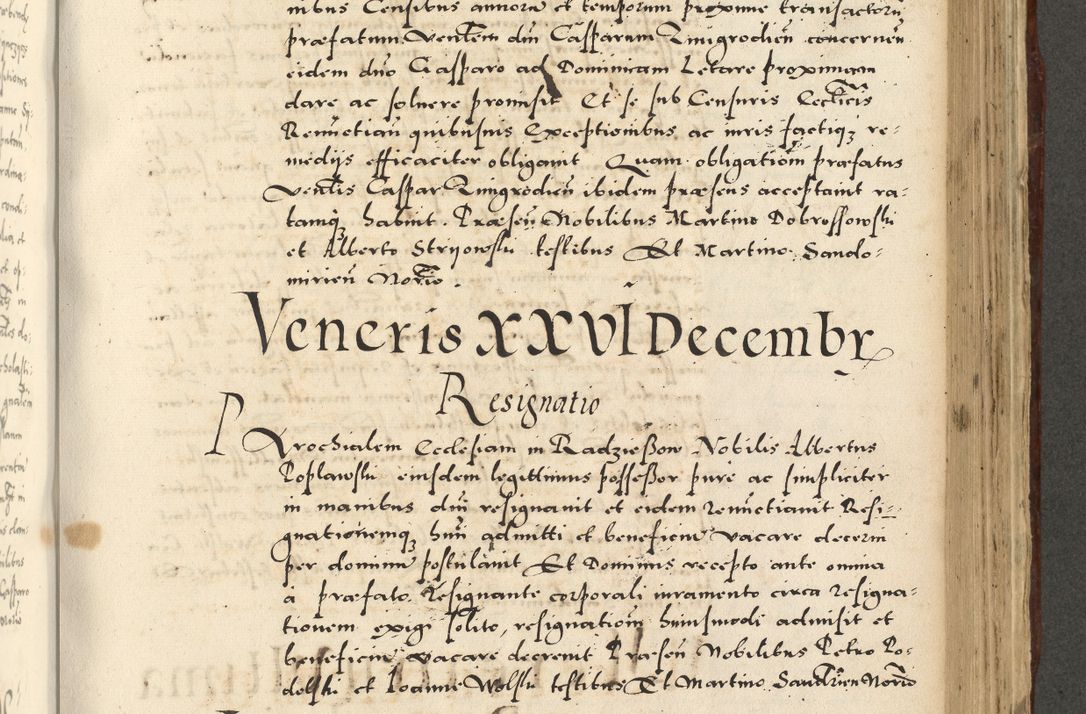 nibus Censibus annorũ et temporum proxime transactorũ
præfatum Venlem dñ Casparum Zmigrodien concernen
eidem dño Gasparo ad Dominicam Letare proximam
dare ac soluere promisit Et se sub Censuris Ecclīcīs
Renuñtian quibusuis Exceptionibus ac iuris factiqꝫ re=
medijs efficaciter obligauit Quam obligationē præfatus
Venlis Caspar Zmigrodien ibidem præsens acceptauit ra=
tamqꝫ habuit. Præsen Nobilibus Martino Dobrossowski
et Alberto Strijowski testibus Et Martino Sando=
mirien Notrio.
Veneris XXVI Decembr
Resignatio
Parochialem Ecclesiam in Radzießow Nobilis Albertus
Poplawski eiusdem legittimus possessor pure ac simpliciter
in manibus dñi resignauit et eidem renuñtiauit Resi=
gnationemqꝫ hm̃i admitti et beneficiũ vacare decerni
per dominũ postulauit Et Dominus recepto ante omnia
a præfato Resignante corporali iuramento circa resigna=
tionem exigi solito, resignationē huiusmodi admisit et
beneficiũ vacare decreuit Præsen Nobilibus Petro Po=
delski et Ioanne Wolski testibus Et Martino Sandrien Notrio